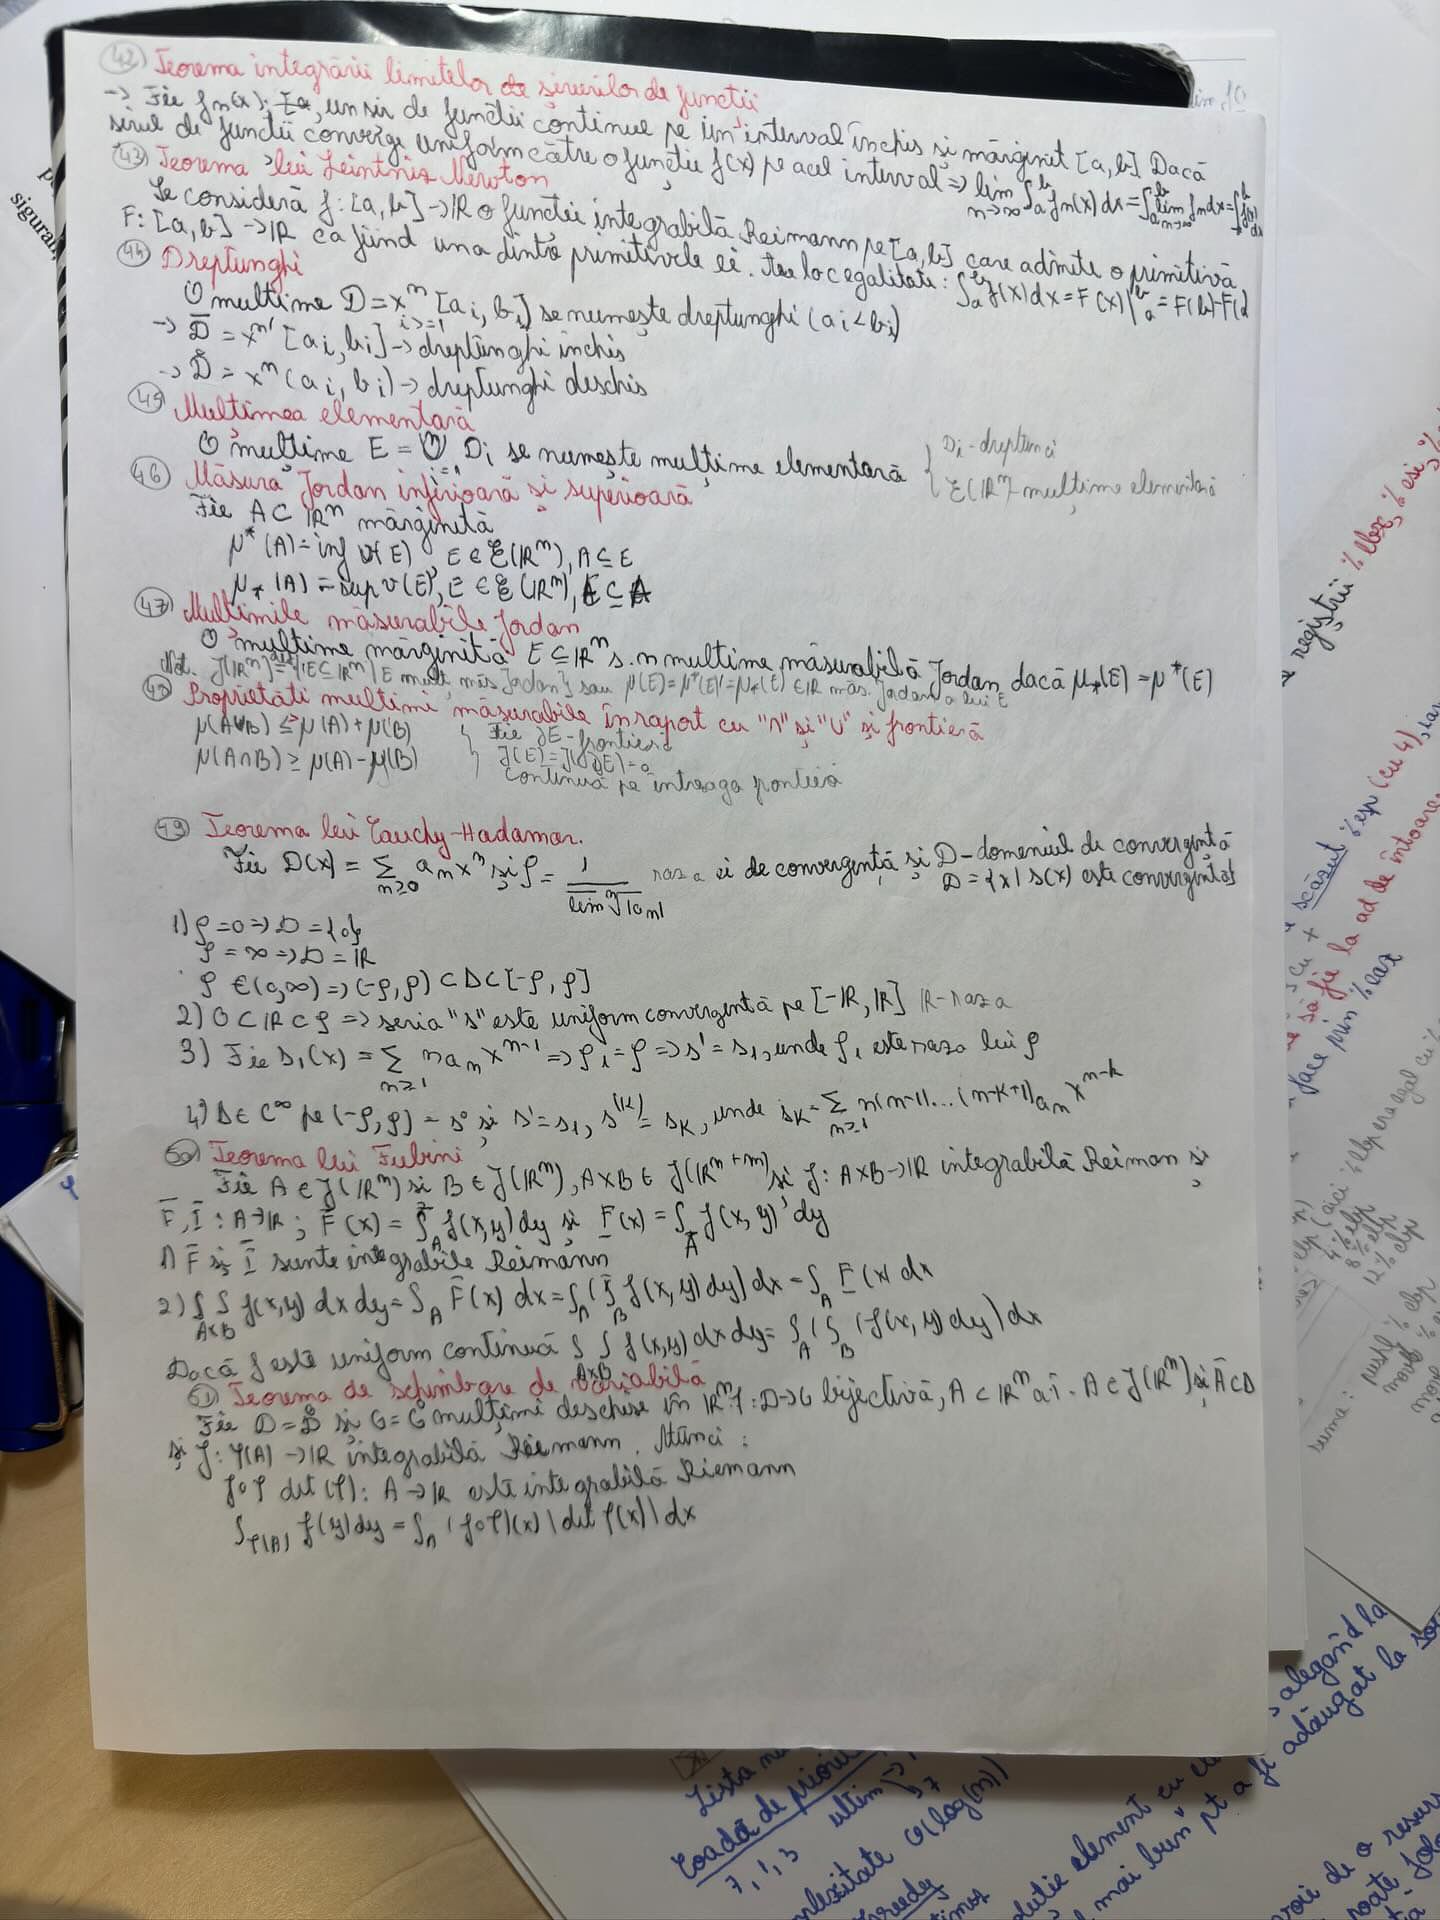 42) Teorema integrării limitelor de șirurilor de funcții
→ Fie fn(x): I a, un sir de funcții continue pe un interval închis și mărginit [a,b] Dacă
sirul de funcții converge uniform către o funcție f(x) pe acel interval ⇒ lim n→∞ ∫a^b fn(x) dx = ∫a^b lim n→∞ fn dx = ∫a^b f(x) dx
43) Teorema lui Leintniz Newton
Se consideră f: [a,b] → IR o funcții integrabilă Reimann pe [a,b] care admite o primitivă
F: [a,b] → IR ca fiind una dintre primitivele ei. Are loc egalitati: ∫a^b f(x) dx = F(x)|a^b = F(b)-F(a
44) Dreptunghi
O multime D = x^n i>=1 [ai, bi] se numește dreptunghi (ai < bi)
→ D̄ = x^n [ai, bi] → dreptunghi închis
→ D̊ = x^n (ai, bi) → dreptunghi deschis
45) Mulțimea elementară
O mulțime E = ⋃ i=1 n Di se numește mulțime elementară
Di - dreptunci
E(IR^n) - mulțime elementară
46) Măsura Jordan inferioară și superioară
Fie A ⊂ IR^n mărginită
μ*(A) = inf v(E) E ∈ E(IR^n), A ⊆ E
μ⁎(A) = sup v(E), E ∈ E(IR^n), E ⊆ A
47) Multimile măsurabile Jordan
O mulțime mărginită E ⊆ IR^n s.n multime măsurabilă Jordan dacă μ⁎(E) = μ*(E)
Not. J(IR^n) = {E ⊆ IR^n | E mult. măs Jordan} sau μ(E) = μ*(E) = μ⁎(E) ∈ IR măs. Jordan a lui E
48) Proprietăti multimi măsurabile în raport cu "∩" și "∪" și frontieră
μ(A∪B) ≤ μ(A) + μ(B)
μ(A∩B) ≥ μ(A) - μ(B)
Fie ∂E - frontiera
J(E) = J(∂E) = 0
continuă pe intreaga frontieră
49) Teorema lui Cauchy-Hadamar.
Fie D(x) = Σ n≥0 an x^n și ρ = 1 / lim ⁿ√|an| raza ei de convergență și D - domeniul de convergență
D = {x | s(x) este convergentă}
1) ρ = 0 ⇒ D = {0}
ρ = ∞ ⇒ D = IR
ρ ∈ (0,∞) ⇒ (-ρ, ρ) ⊂ D ⊂ [-ρ, ρ]
2) 0 < IR < ρ ⇒ seria "s" este uniform convergentă pe [-IR, IR] IR-raza
3) Fie s1(x) = Σ n≥1 n an x^n-1 ⇒ ρ1 = ρ ⇒ s' = s1, unde ρ1 este raza lui ρ
4) s ∈ C^∞ pe (-ρ, ρ) = s° și s' = s1, s^(K) = sK, unde sK = Σ n≥1 n(n-1)...(n-K+1) an x^n-k
50) Teorema lui Fubini
Fie A ∈ J(IR^n) si B ∈ J(IR^m), A×B ∈ J(IR^n+m) si f: A×B → IR integrabilă Reiman și
F̄, I̱ : A → IR; F̄(x) = ∫̄A f(x,y) dy și F̱(x) = ∫A̱ f(x,y) dy
1) F̄ si I̱ sunte integrabile Reimann
2) ∫∫ A×B f(x,y) dx dy = ∫A F̄(x) dx = ∫A (∫̄B f(x,y) dy) dx = ∫A F̱(x) dx
Dacă f este uniform continuă ∫∫ A×B f(x,y) dx dy = ∫A (∫B (f(x,y) dy) dx
51) Teorema de schimbare de variabilă
Fie D = D̊ și G = G̊ mulțimi deschise în IR^n φ: D→G bijectivă, A ⊂ IR^n aî. A ∈ J(IR^n) și Ā ⊂ D
și f: φ(A) → IR integrabilă Riemann. Atunci:
f∘φ det(φ): A → IR este integrabilă Riemann
∫φ(A) f(y) dy = ∫A (f∘φ)(x) |det φ(x)| dx
registrii
scăzut
să fie la ad de întoarce
face prin % eax
Lista
Coadă de priorit
7, 1, 3 ultim
O(log(n))
mplexitate
mai bun pt a fi adăugat la
alegând la
voie de o resurs